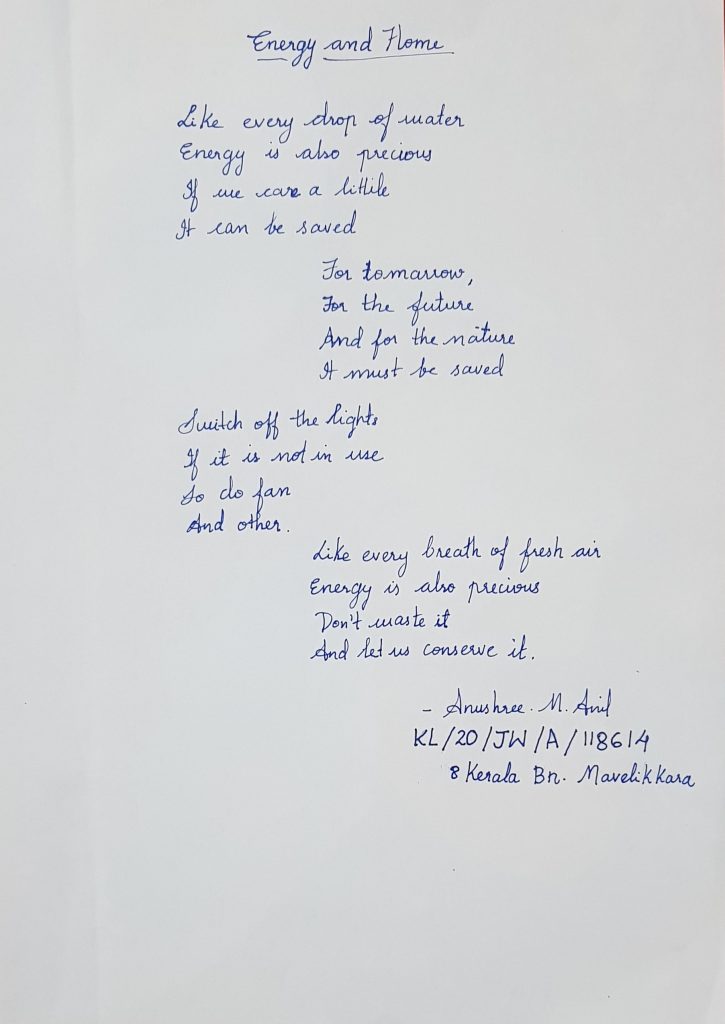 Energy and Home
Like every drop of water
Energy is also precious
If we care a littile
It can be saved
For tomarrow,
For the future
And for the nature
It must be saved
Switch off the lights
If it is not in use
So do fan
And other.
Like every breath of fresh air
Energy is also precious
Don't waste it
And let us conserve it.
- Anushree. M. Anil
KL/20/JW/A/118614
8 Kerala Bn. Mavelikkara